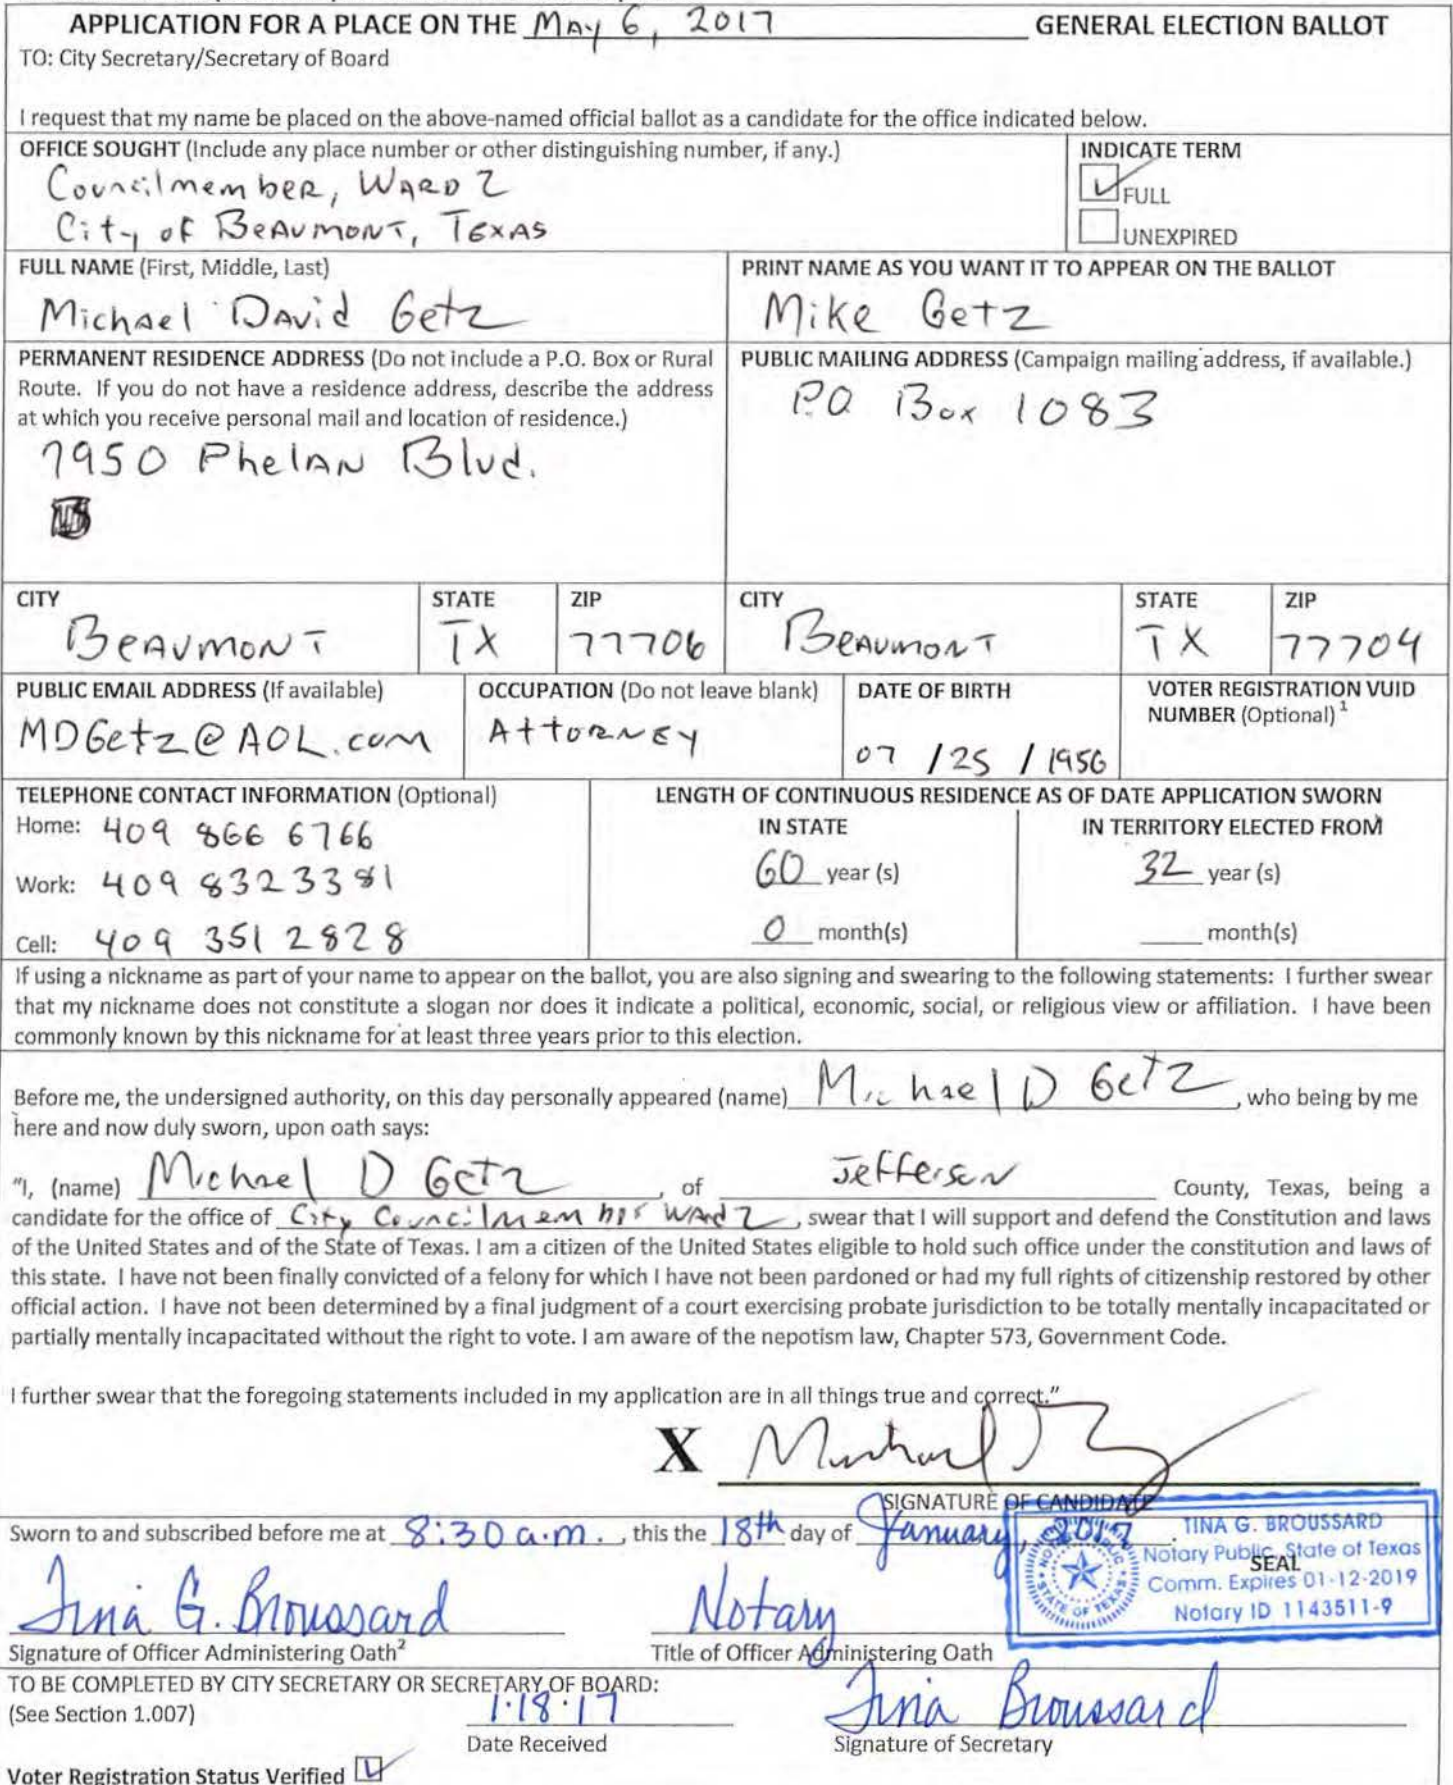 APPLICATION FOR A PLACE ON THE MAY 6, 2017 GENERAL ELECTION BALLOT
TO: City Secretary/Secretary of Board
I request that my name be placed on the above-named official ballot as a candidate for the office indicated below.
OFFICE SOUGHT (Include any place number or other distinguishing number, if any.)
Councilmember, Ward 2
City of Beaumont, Texas
INDICATE TERM
FULL
UNEXPIRED
FULL NAME (First, Middle, Last)
Michael David Getz
PRINT NAME AS YOU WANT IT TO APPEAR ON THE BALLOT
Mike Getz
PERMANENT RESIDENCE ADDRESS (Do not include a P.O. Box or Rural
Route. If you do not have a residence address, describe the address
at which you receive personal mail and location of residence.)
7950 Phelan Blvd.
PUBLIC MAILING ADDRESS (Campaign mailing address, if available.)
P.O. Box 1083
CITY STATE ZIP CITY STATE ZIP
Beaumont TX 77706 Beaumont TX 77704
PUBLIC EMAIL ADDRESS (If available)
MDGetz@AOL.com
OCCUPATION (Do not leave blank)
Attorney
DATE OF BIRTH
07 / 25 / 1956
VOTER REGISTRATION VUID
NUMBER (Optional) 1
TELEPHONE CONTACT INFORMATION (Optional)
Home: 409 866 6766
Work: 409 832 3381
Cell: 409 351 2828
LENGTH OF CONTINUOUS RESIDENCE AS OF DATE APPLICATION SWORN
IN STATE
60 year (s)
0 month(s)
IN TERRITORY ELECTED FROM
32 year (s)
month(s)
If using a nickname as part of your name to appear on the ballot, you are also signing and swearing to the following statements: I further swear
that my nickname does not constitute a slogan nor does it indicate a political, economic, social, or religious view or affiliation. I have been
commonly known by this nickname for at least three years prior to this election.
Before me, the undersigned authority, on this day personally appeared (name) Michael D Getz, who being by me
here and now duly sworn, upon oath says:
"I, (name) Michael D Getz, of Jefferson County, Texas, being a
candidate for the office of City Councilmember Ward 2, swear that I will support and defend the Constitution and laws
of the United States and of the State of Texas. I am a citizen of the United States eligible to hold such office under the constitution and laws of
this state. I have not been finally convicted of a felony for which I have not been pardoned or had my full rights of citizenship restored by other
official action. I have not been determined by a final judgment of a court exercising probate jurisdiction to be totally mentally incapacitated or
partially mentally incapacitated without the right to vote. I am aware of the nepotism law, Chapter 573, Government Code.
I further swear that the foregoing statements included in my application are in all things true and correct."
X
SIGNATURE OF CANDIDATE
Sworn to and subscribed before me at 8:30 a.m., this the 18th day of January, 2017.
TINA G. BROUSSARD
Notary Public, State of Texas
SEAL
Comm. Expires 01-12-2019
Notary ID 1143511-9
NOTARY PUBLIC
STATE OF TEXAS
Tina G. Broussard
Signature of Officer Administering Oath2
Notary
Title of Officer Administering Oath
TO BE COMPLETED BY CITY SECRETARY OR SECRETARY OF BOARD:
(See Section 1.007)
1·18·17
Date Received
Tina Broussard
Signature of Secretary
Voter Registration Status Verified